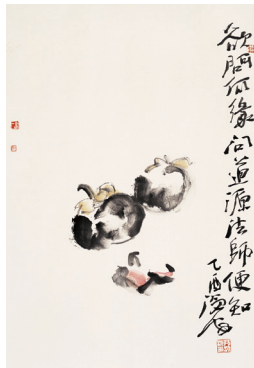 欲問何緣问道源法師便知
乙酉